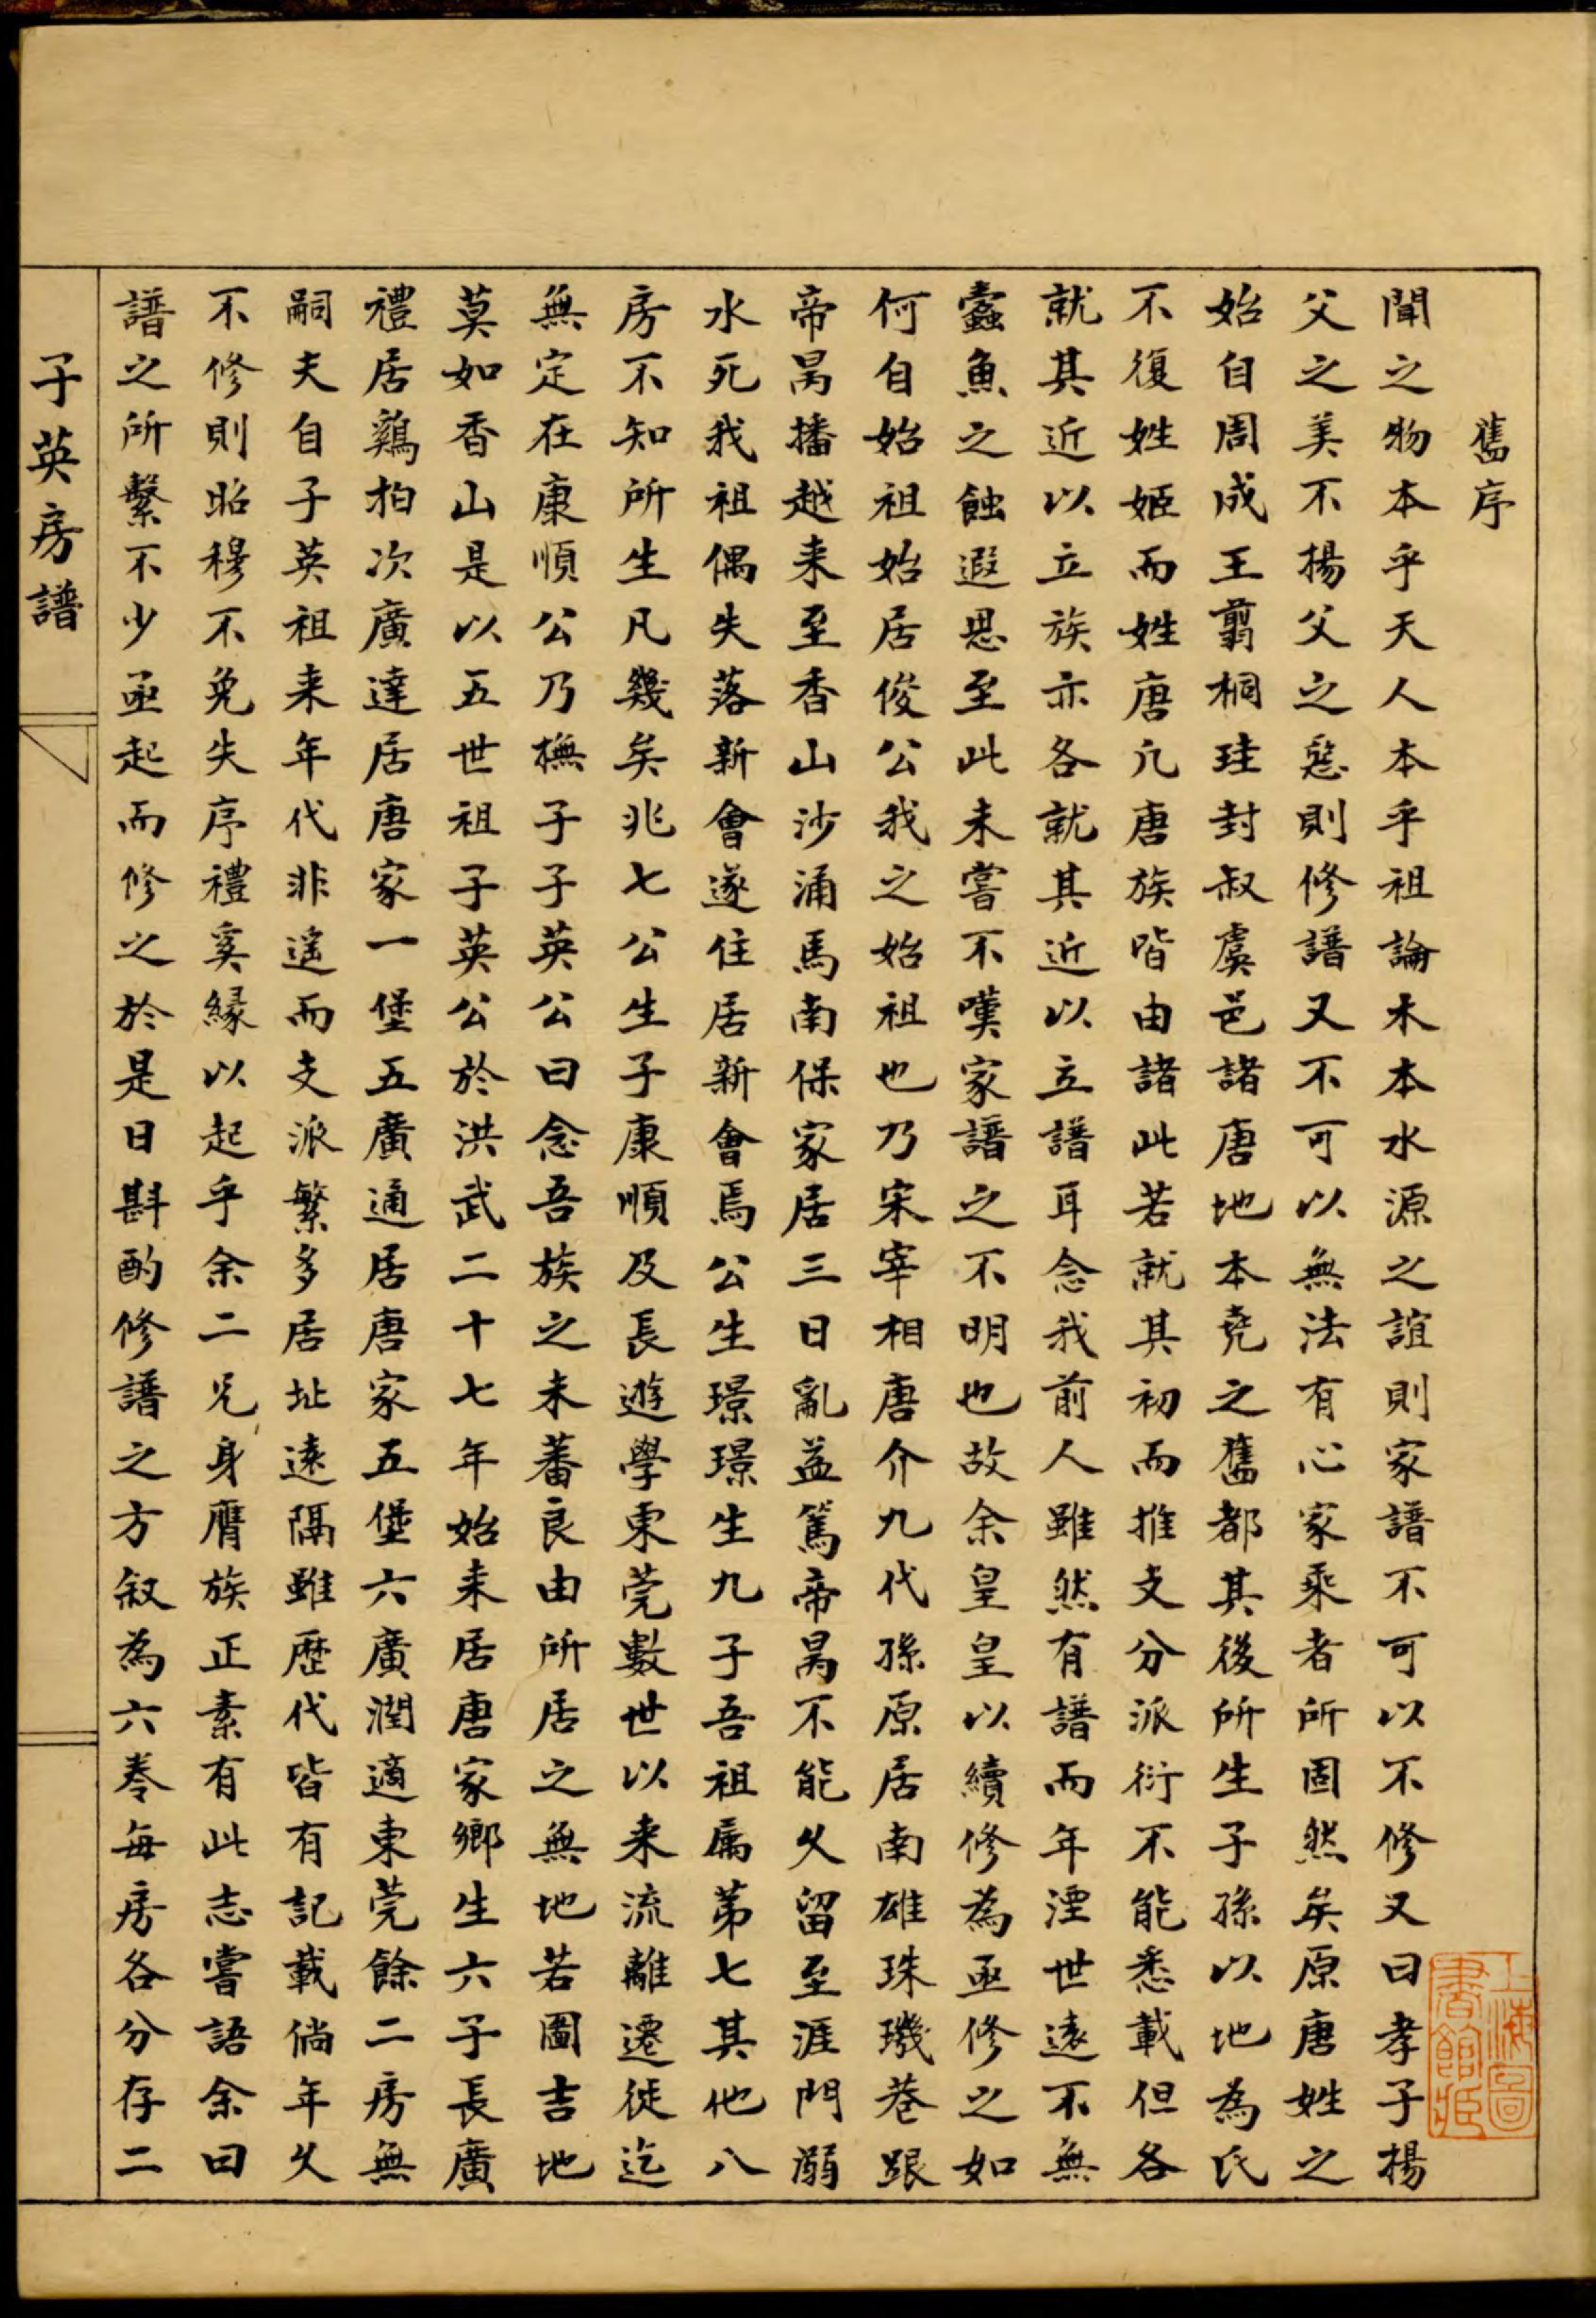 舊序
聞之物本乎天人本乎祖論木本水源之誼則家譜不可以不修又曰孝子揚
父之美不揚父之惡則修譜又不可以無法有心家乘者所固然矣原唐姓之
始自周成王翦桐珪封叔虞邑諸唐地本堯之舊都其後所生子孫以地為氏
不復姓姬而姓唐凢唐族皆由諸此若就其初而推支分派衍不能悉載但各
就其近以立族亦各就其近以立譜耳念我前人雖然有譜而年湮世遠不無
蠹魚之蝕遐思至此未嘗不嘆家譜之不明也故余皇皇以續修為亟修之如
何自始祖始居俊公我之始祖也乃宋宰相唐介九代孫原居南雄珠璣巷跟
帝昺播越来至香山沙涌馬南保家居三日亂益篤帝昺不能久留至涯門溺
水死我祖偶失落新會遂住居新會焉公生璟璟生九子吾祖属第七其他八
房不知所生凡幾矣兆七公生子康順及長遊學東莞數世以来流離遷徙迄
無定在康順公乃橅子子英公曰念吾族之未蕃良由所居之無地若圖吉地
莫如香山是以五世祖子英公於洪武二十七年始来居唐家鄉生六子長廣
禮居鷄柏次廣達居唐家一堡五廣通居唐家五堡六廣潤適東莞餘二房無
嗣夫自子英祖来年代非遙而支派繁多居址遠隔雖歷代皆有記載倘年久
不修則昭穆不免失序禮奚緣以起乎余二兄身膺族正素有此志嘗語余曰
譜之所繫不少亟起而修之於是日斟酌修譜之方叙為六卷每房各分存二
子英房譜
上海圖
書館藏